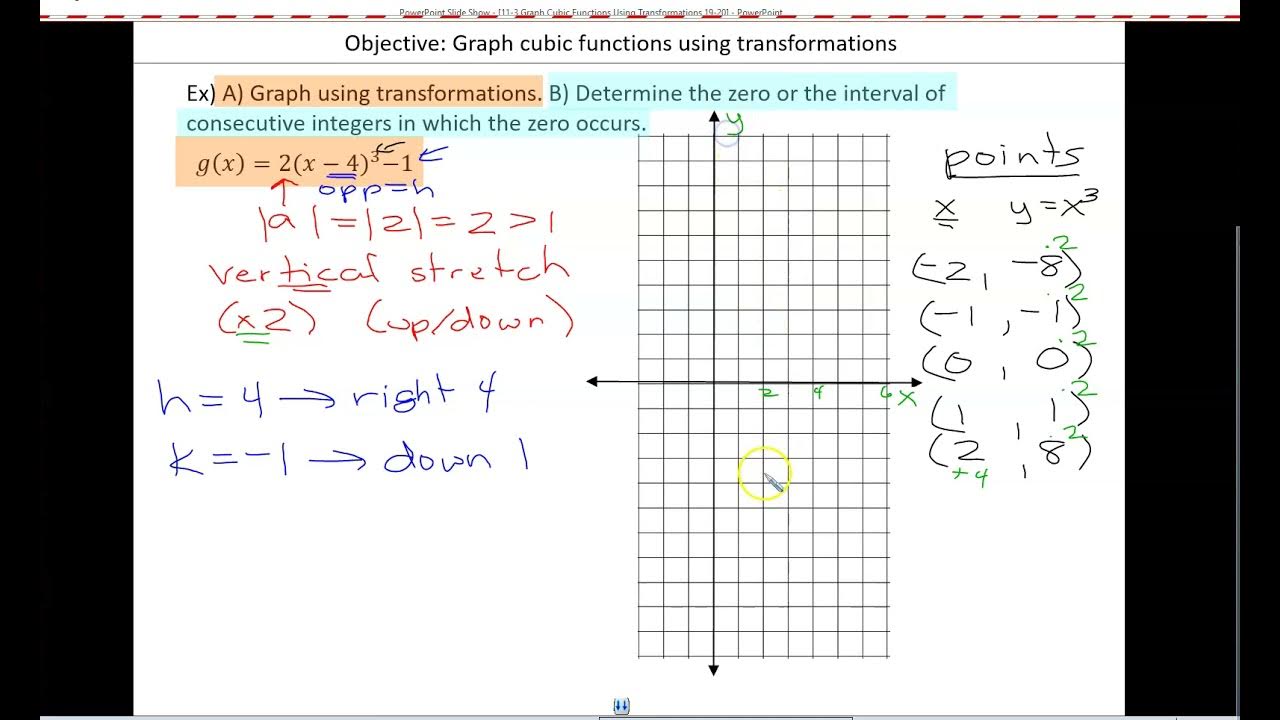 PowerPoint Slide Show - [11-3 Graph Cubic Functions Using Transformations 19-20] - PowerPoint
Objective: Graph cubic functions using transformations
Ex) A) Graph using transformations. B) Determine the zero or the interval of
consecutive integers in which the zero occurs.
g(x) = 2(x − 4)³−1
opp=h
|a| = |2| = 2 > 1
vertical stretch
(x2) (up/down)
h = 4 → right 4
k = -1 → down 1
y
2 4 6 x
points
x y = x³
(-2, -8) ·2
(-1, -1) ·2
(0, 0) ·2
(1, 1) ·2
(2, 8) ·2
+4